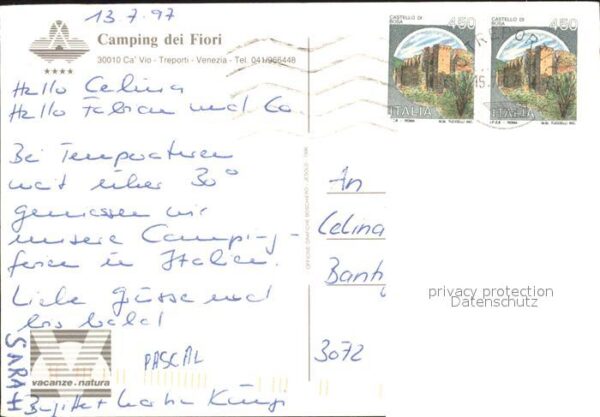 13.7.97
Camping dei Fiori
30010 Ca' Vio - Treporti - Venezia - Tel. 041/966448
★★★★
CASTELLO DI BOSA 450
ITALIA
I.P.Z.S. - ROMA
CASTELLO DI BOSA 450
ITALIA
I.P.Z.S. - ROMA
Hallo Celina
Hallo Fabian und Co.
Bei Temperaturen
weit über 30°
geniessen wir
unsere Camping-
ferien in Italien.
Liebe Grüsse und
bis bald
SARAH
PASCAL
vacanze natura
Brigitte + Martin
An
Celina
3072
privacy protection
Datenschutz